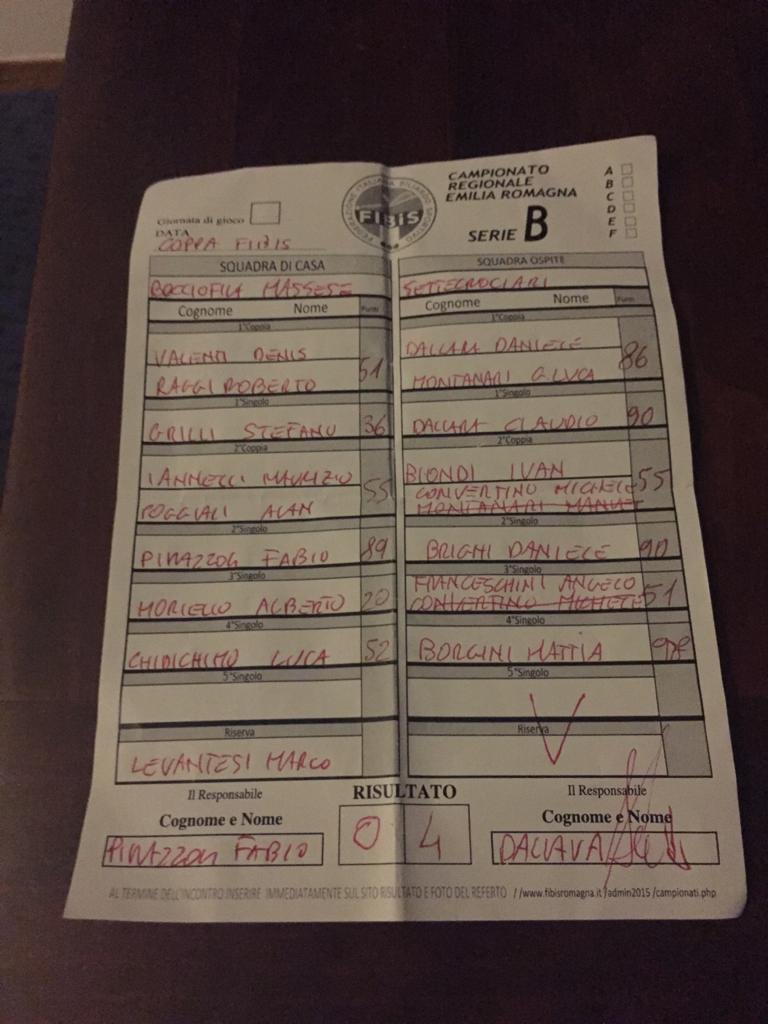 Giornata di gioco
DATA
COPPA FIBIS
FEDERAZIONE ITALIANA BILIARDO SPORTIVO
FIBiS
CAMPIONATO
REGIONALE
EMILIA ROMAGNA
SERIE B
A
B
C
D
E
F
SQUADRA DI CASA
BOCCIOFILA MASSESE
Cognome Nome Punti
1°Coppia
VALENTI DENIS
RAGGI ROBERTO 51
1°Singolo
GRILLI STEFANO 36
2°Coppia
IANNELLI MAURIZIO
POGGIALI ALAN 55
2°Singolo
PIRAZZOLI FABIO 89
3°Singolo
MORIELLO ALBERTO 20
4°Singolo
CHIDICHIMO LUCA 52
5°Singolo
Riserva
LEVANTESI MARCO
SQUADRA OSPITE
SETTECROCIARI
Cognome Nome Punti
1°Coppia
DALLARA DANIELE
MONTANARI G.LUCA 86
1°Singolo
DALLARA CLAUDIO 90
2°Coppia
BIONDI IVAN
CONVERTINO MICHELE 55
MONTANARI
2°Singolo
BRIGHI DANIELE 90
3°Singolo
FRANCESCHINI ANGELO
CONVERTINO MICHELE 51
4°Singolo
BORGINI MATTIA
5°Singolo
Riserva
Il Responsabile
Cognome e Nome
PIRAZZOLI FABIO
RISULTATO
0 4
Il Responsabile
Cognome e Nome
AL TERMINE DELL'INCONTRO INSERIRE IMMEDIATAMENTE SUL SITO RISULTATO E FOTO DEL REFERTO //www.fibisromagna.it/admin2015/campionati.php